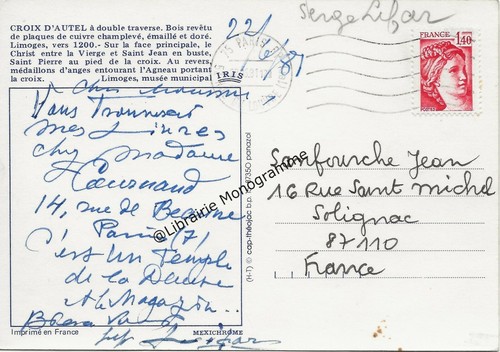 CROIX D'AUTEL à double traverse. Bois revêtu
de plaques de cuivre champlevé, émaillé et doré.
Limoges, vers 1200.- Sur la face principale, le
Christ entre la Vierge et Saint Jean en buste,
Saint Pierre au pied de la croix. Au revers,
médaillons d'anges entourant l'Agneau portant
la croix. Limoges, musée municipal
IRIS
Serge Lifar
22/6/81
75 PARIS
FRANCE
1,40
POSTES
Cher
Vous trouverez
mes Livres
chez Madame
14, rue de Beaune
Paris (7)
c'est un Temple
de la Danse
et le Magazin..
Imprimé en France
MEXICHROME
(H-T) © cap-théojac b.p. 87350 panazol
@Librairie Monogramme
Sanfourche Jean
16 Rue Saint michel
Solignac
87110
France